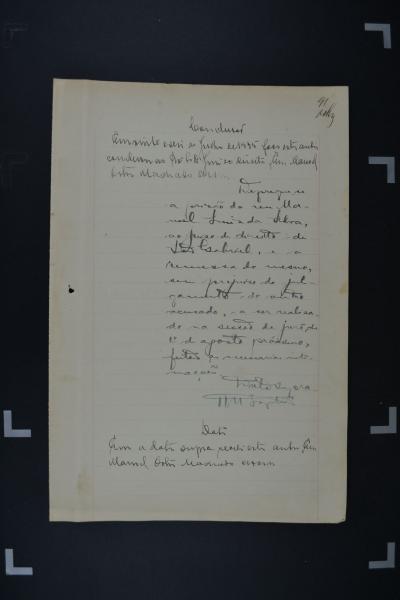 91
Conclusão
Em vinte e seis de Julho de 1935 faço estes autos
conclusos ao Juiz de Direito Eu, Manoel
Machado escr.
Depreque-se
a prisão do reu Ma-
noel Luiz da Silva,
ao juizo de direito de
São Gabriel, e a
remessa do mesmo,
sem prejuizo do jul-
gamento do outro
accusado, a ser realisa-
do na sessão do jury de
1º de agosto próximo,
feitas as necessarias inti-
mações.
Data
Em a data supra recebi estes autos Eu
Manoel Machado escr.